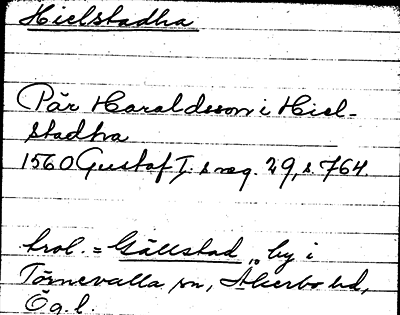 Hielstadha
Pär Haraldsson i Hiel-
stadha
1560 Gustaf I:s reg. 29, s. 764.
trol. = Gällstad, by i
Törnevalla sn, Åkerbo hd,
Ög. l.